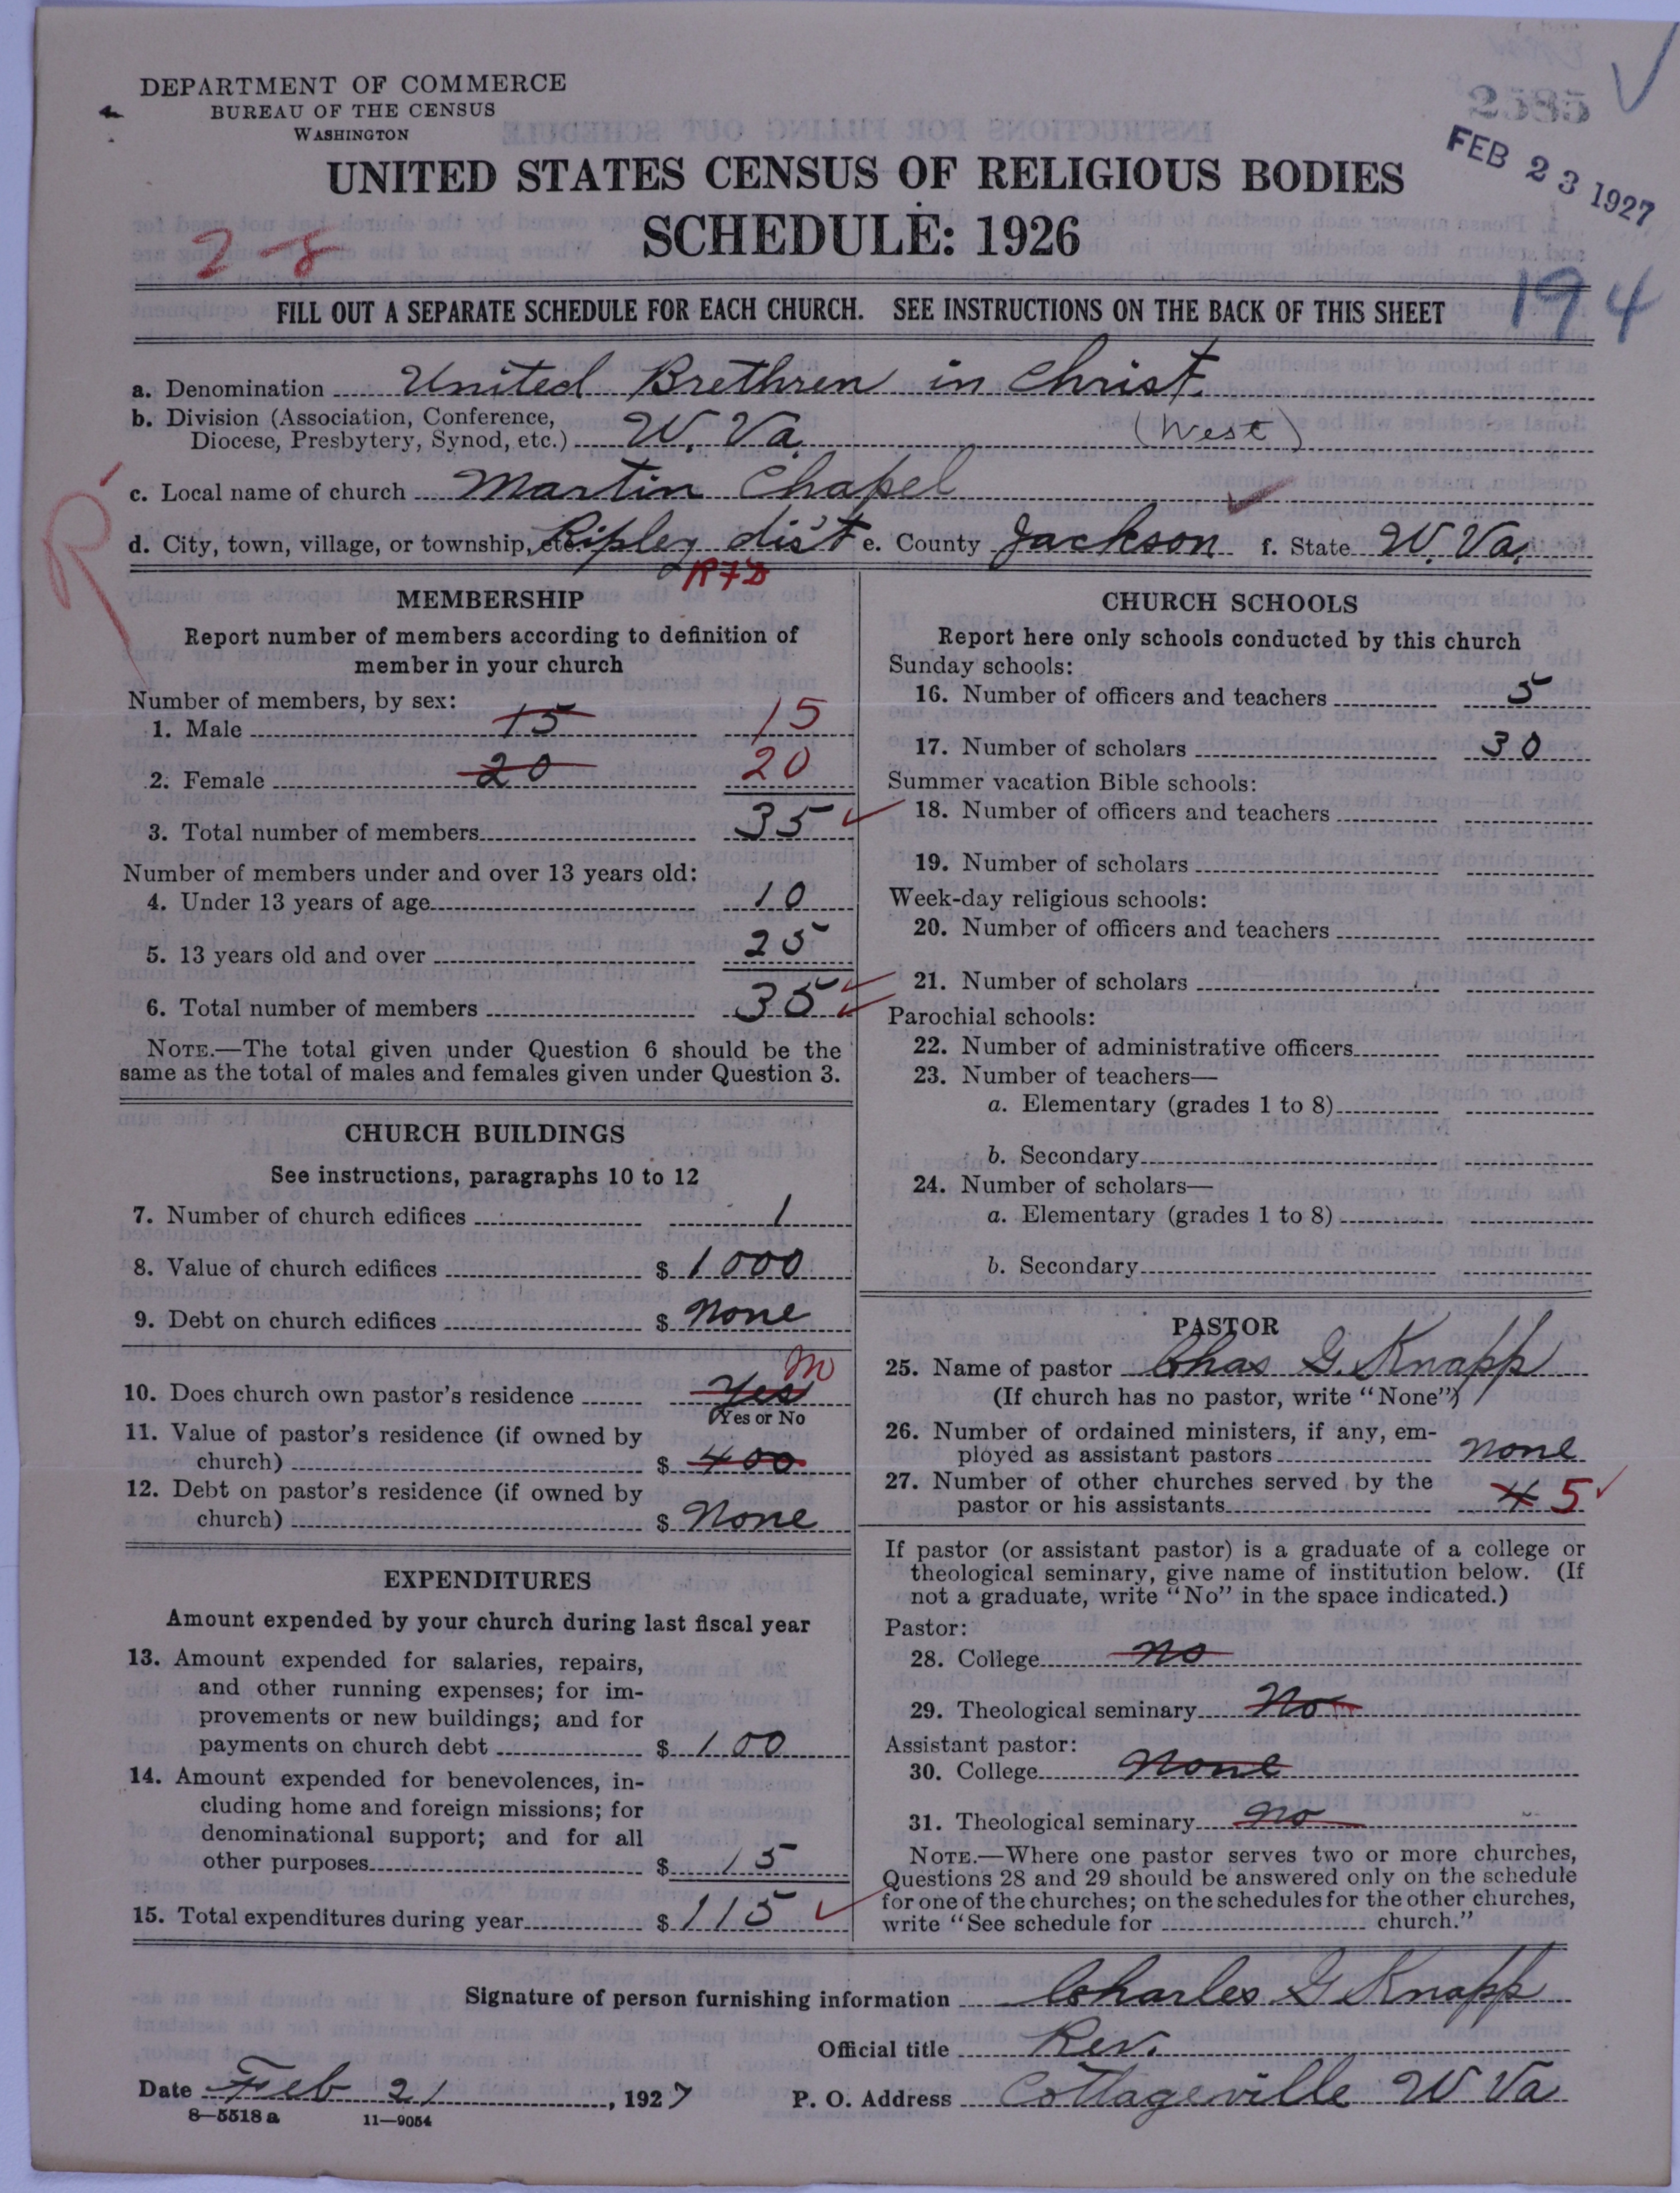 DEPARTMENT OF COMMERCE
BUREAU OF THE CENSUS
WASHINGTON
2585
FEB 23 1927
UNITED STATES CENSUS OF RELIGIOUS BODIES
SCHEDULE: 1926
2-8
194
FILL OUT A SEPARATE SCHEDULE FOR EACH CHURCH. SEE INSTRUCTIONS ON THE BACK OF THIS SHEET
a. Denomination United Brethren in Christ
b. Division (Association, Conference,
Diocese, Presbytery, Synod, etc.) W. Va. (West)
c. Local name of church Martin Chapel
R
d. City, town, village, or township, etc. Ripley dist e. County Jackson f. State W. Va.
RFD
MEMBERSHIP
Report number of members according to definition of
member in your church
Number of members, by sex:
1. Male 15 15
2. Female 20 20
3. Total number of members 35
Number of members under and over 13 years old:
4. Under 13 years of age 10
5. 13 years old and over 25
6. Total number of members 35
NOTE.—The total given under Question 6 should be the
same as the total of males and females given under Question 3.
CHURCH BUILDINGS
See instructions, paragraphs 10 to 12
7. Number of church edifices 1
8. Value of church edifices $ 1000
9. Debt on church edifices $ none
10. Does church own pastor's residence Yes no
(Yes or No
11. Value of pastor's residence (if owned by
church) $ 400
12. Debt on pastor's residence (if owned by
church) $ None
EXPENDITURES
Amount expended by your church during last fiscal year
13. Amount expended for salaries, repairs,
and other running expenses; for im-
provements or new buildings; and for
payments on church debt $ 100
14. Amount expended for benevolences, in-
cluding home and foreign missions; for
denominational support; and for all
other purposes $ 15
15. Total expenditures during year $ 115
CHURCH SCHOOLS
Report here only schools conducted by this church
Sunday schools:
16. Number of officers and teachers 5
17. Number of scholars 30
Summer vacation Bible schools:
18. Number of officers and teachers
19. Number of scholars
Week-day religious schools:
20. Number of officers and teachers
21. Number of scholars
Parochial schools:
22. Number of administrative officers
23. Number of teachers—
a. Elementary (grades 1 to 8)
b. Secondary
24. Number of scholars—
a. Elementary (grades 1 to 8)
b. Secondary
PASTOR
25. Name of pastor Chas G. Knapp
(If church has no pastor, write "None")
26. Number of ordained ministers, if any, em-
ployed as assistant pastors none
27. Number of other churches served by the
pastor or his assistants 4 5
If pastor (or assistant pastor) is a graduate of a college or
theological seminary, give name of institution below. (If
not a graduate, write "No" in the space indicated.)
Pastor:
28. College no
29. Theological seminary No
Assistant pastor:
30. College None
31. Theological seminary no
NOTE.—Where one pastor serves two or more churches,
Questions 28 and 29 should be answered only on the schedule
for one of the churches; on the schedules for the other churches,
write "See schedule for church."
Signature of person furnishing information Charles G Knapp
Official title Rev.
Date Feb 21, 1927 P. O. Address Cottageville W Va
8—5518 a 11—9054